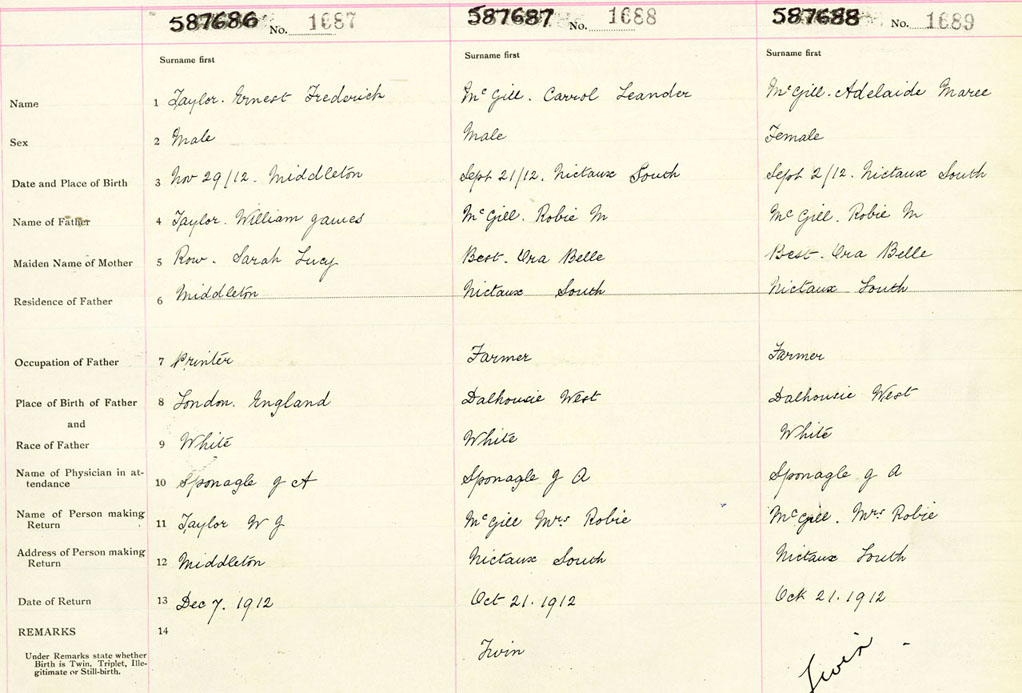 587686 No. 1687 587687 No. 1688 587688 No. 1689
Surname first Surname first Surname first
Name 1 Taylor. Ernest Frederick McGill. Carrol Leander McGill. Adelaide Maree
Sex 2 Male Male Female
Date and Place of Birth 3 Nov 29/12. Middleton Sept 21/12. Nictaux South Sept 2/12. Nictaux South
Name of Father 4 Taylor. William James McGill. Robie M McGill. Robie M
Maiden Name of Mother 5 Row. Sarah Lucy Best. Ora Belle Best. Ora Belle
Residence of Father 6 Middleton Nictaux South Nictaux South
Occupation of Father 7 Printer Farmer Farmer
Place of Birth of Father 8 London. England Dalhousie West Dalhousie West
and
Race of Father 9 White White White
Name of Physician in at-
tendance 10 Sponagle J A Sponagle J A Sponagle J A
Name of Person making
Return 11 Taylor W J McGill Mrs Robie McGill. Mrs Robie
Address of Person making
Return 12 Middleton Nictaux South Nictaux South
Date of Return 13 Dec 7. 1912 Oct 21. 1912 Oct 21. 1912
REMARKS 14
Under Remarks state whether
Birth is Twin, Triplet, Ille-
gitimate or Still-birth.
Twin Twin